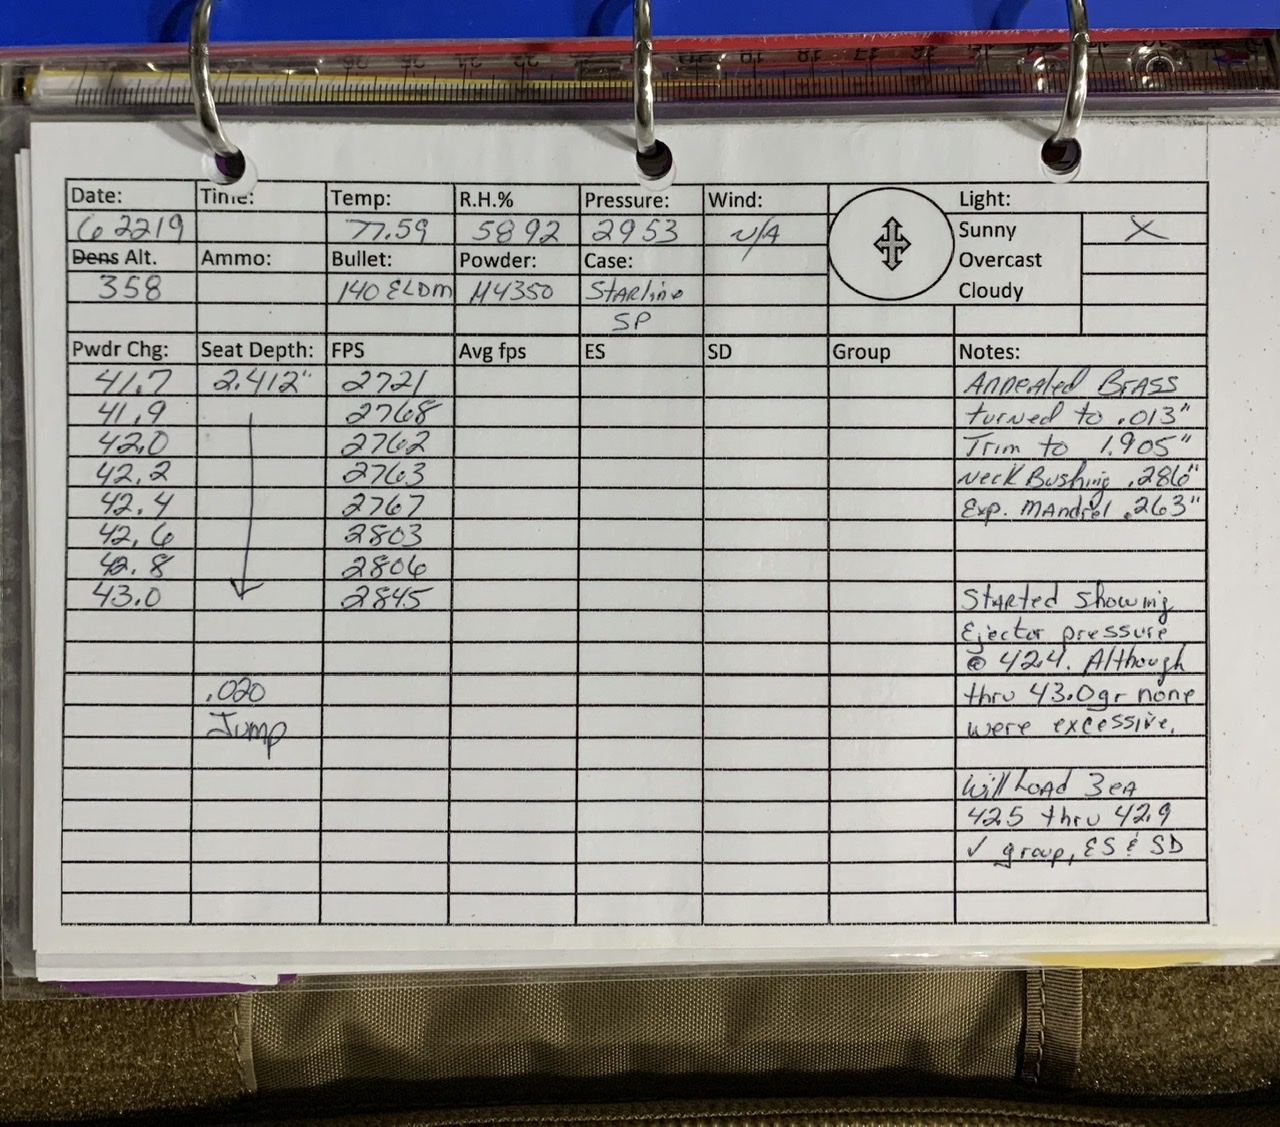 Date: Time: Temp: R.H.% Pressure: Wind: Light:
6 22 19 77.59 58 92 29 53 N/A Sunny X
Dens Alt. Ammo: Bullet: Powder: Case: Overcast
358 140 ELDM H4350 Starline Cloudy
SP
Pwdr Chg: Seat Depth: FPS Avg fps ES SD Group Notes:
41.7 2.412" 2721 Annealed Brass
41.9 2768 turned to .013"
42.0 2762 Trim to 1.905"
42.2 2763 Neck Bushing .286"
42.4 2767 Exp. Mandrel .263"
42.6 2803
42.8 2806
43.0 2845 Started showing
Ejector pressure
@ 42.4. Although
.020 thru 43.0gr none
Jump were excessive.
Will Load 3 ea
42.5 thru 42.9
✓ group, ES & SD